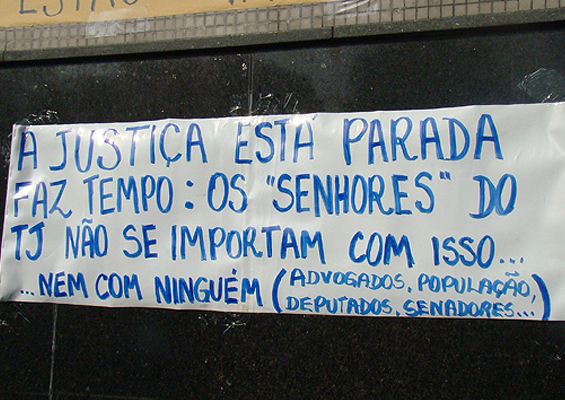 ESTÃO
A JUSTIÇA ESTÁ PARADA
FAZ TEMPO: OS "SENHORES" DO
TJ NÃO SE IMPORTAM COM ISSO...
...NEM COM NINGUÉM (ADVOGADOS, POPULAÇÃO,
DEPUTADOS, SENADORES...)